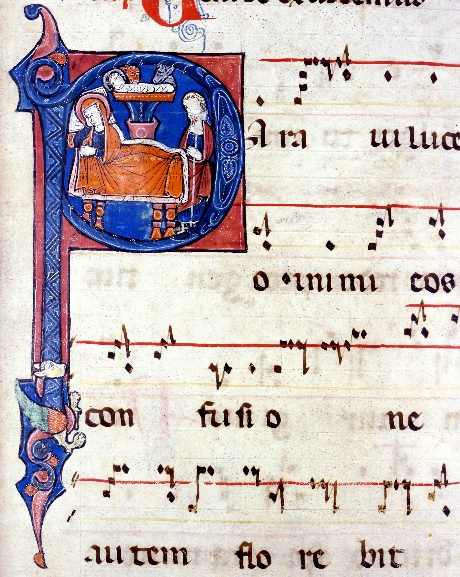 PAra ui luce
o · inimi cos
con fusi o ne
autem flo re bit